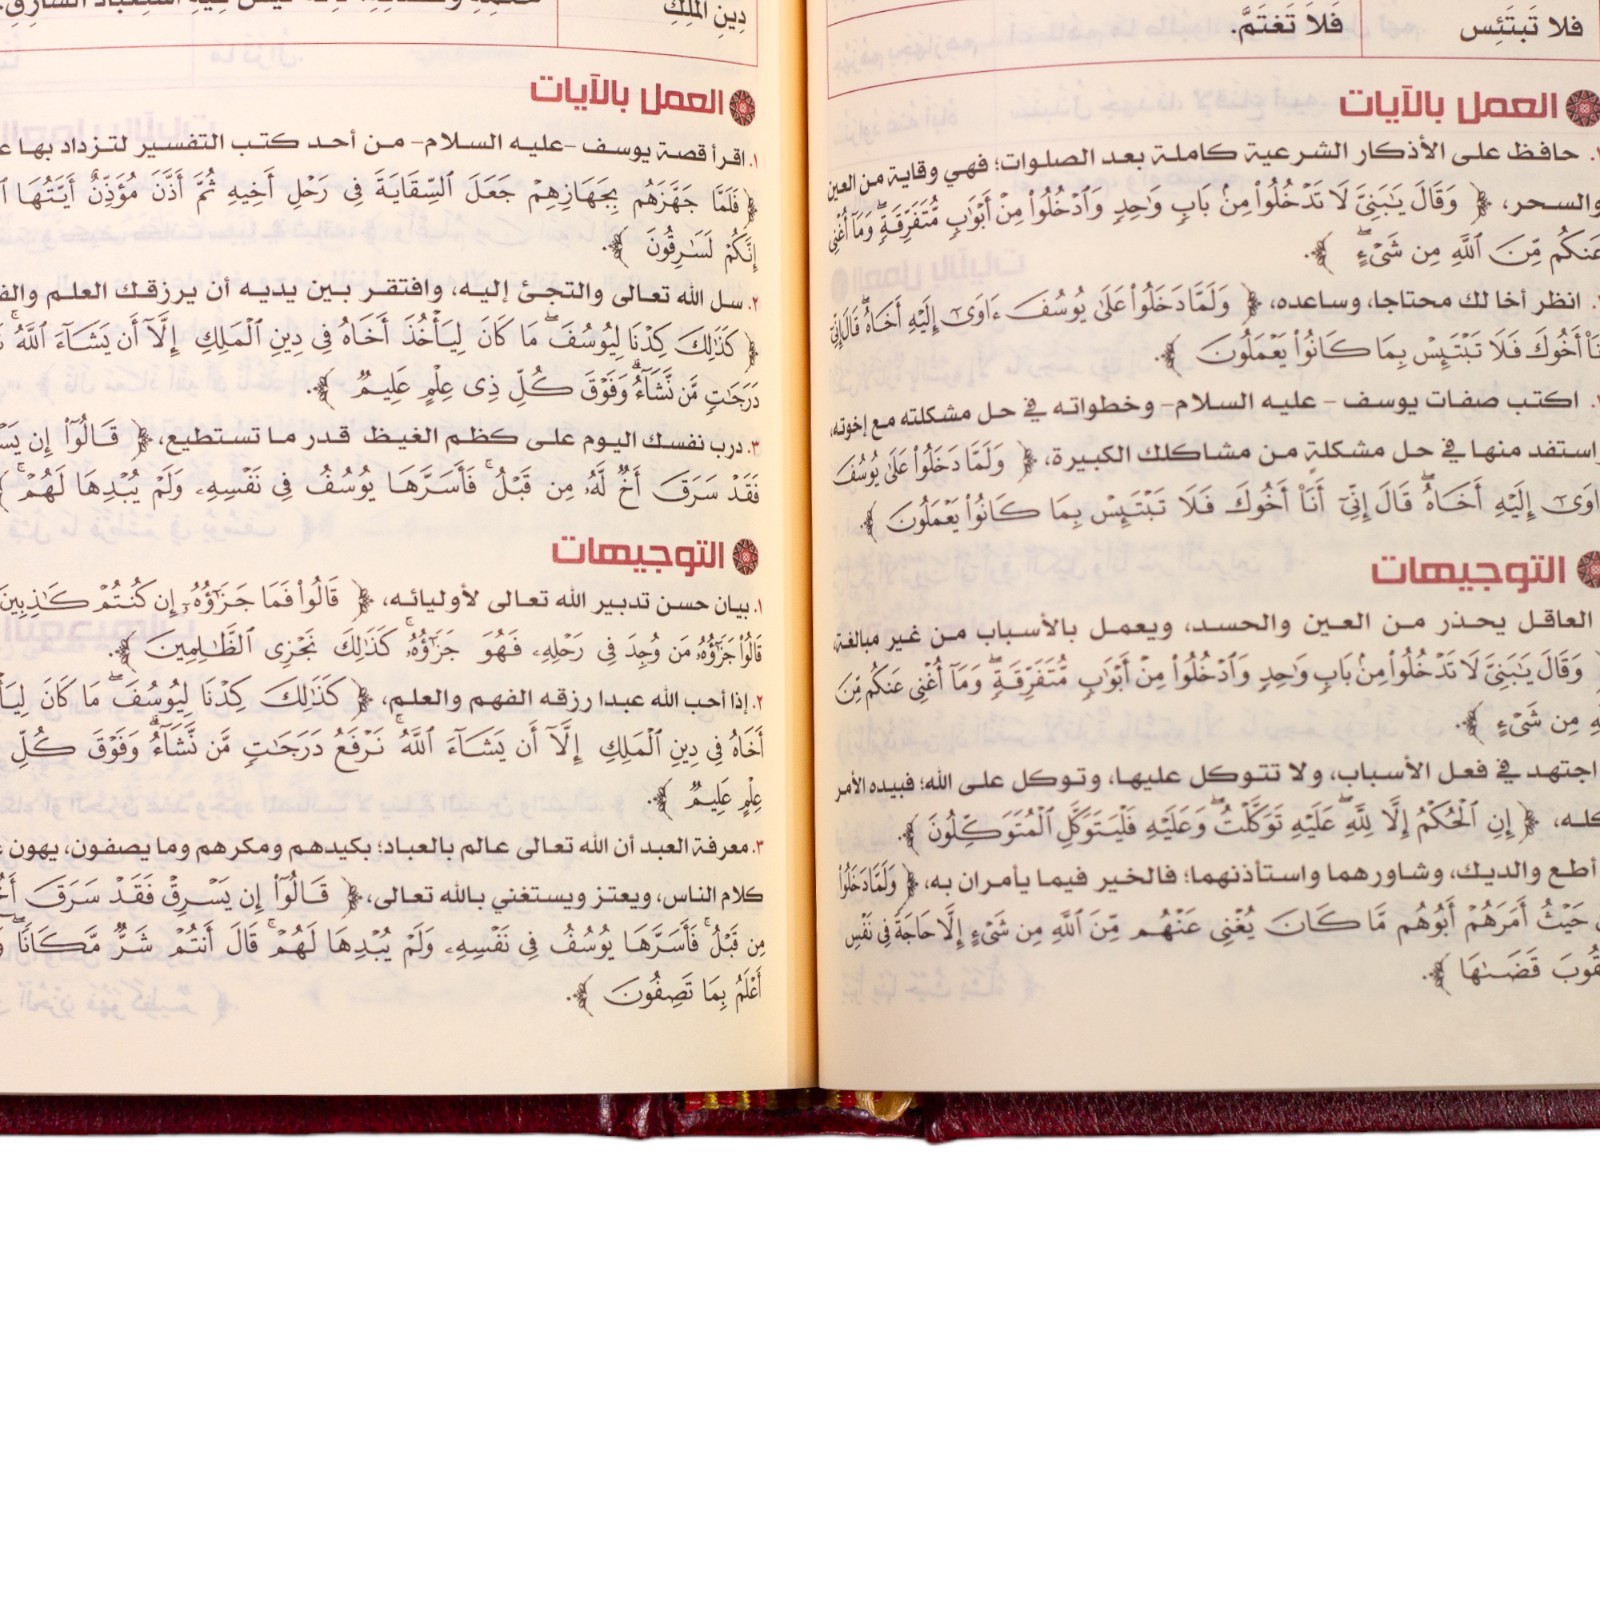 فلا تَبتَئِس فَلَا تَغتَمَّ.
العمل بالآيات
حافظ على الأذكار الشرعية كاملة بعد الصلوات؛ فهي وقاية من العين
والسحر، ﴿ وَقَالَ يَٰبَنِىَّ لَا تَدْخُلُوا۟ مِنۢ بَابٍ وَٰحِدٍ وَٱدْخُلُوا۟ مِنْ أَبْوَٰبٍ مُّتَفَرِّقَةٍ ۖ وَمَآ أُغْنِى
عَنكُم مِّنَ ٱللَّهِ مِن شَىْءٍ ۖ ﴾.
انظر أخا لك محتاجا، وساعده، ﴿ وَلَمَّا دَخَلُوا۟ عَلَىٰ يُوسُفَ ءَاوَىٰٓ إِلَيْهِ أَخَاهُ ۖ قَالَ إِنِّىٓ
أَنَا۠ أَخُوكَ فَلَا تَبْتَئِسْ بِمَا كَانُوا۟ يَعْمَلُونَ ﴾.
اكتب صفات يوسف - عليه السلام - وخطواته في حل مشكلته مع إخوته،
واستفد منها في حل مشكلةٍ من مشاكلك الكبيرة، ﴿ وَلَمَّا دَخَلُوا۟ عَلَىٰ يُوسُفَ
ءَاوَىٰٓ إِلَيْهِ أَخَاهُ ۖ قَالَ إِنِّىٓ أَنَا۠ أَخُوكَ فَلَا تَبْتَئِسْ بِمَا كَانُوا۟ يَعْمَلُونَ ﴾.
التوجيهات
العاقل يحذر من العين والحسد، ويعمل بالأسباب من غير مبالغة،
﴿ وَقَالَ يَٰبَنِىَّ لَا تَدْخُلُوا۟ مِنۢ بَابٍ وَٰحِدٍ وَٱدْخُلُوا۟ مِنْ أَبْوَٰبٍ مُّتَفَرِّقَةٍ ۖ وَمَآ أُغْنِى عَنكُم مِّنَ
ٱللَّهِ مِن شَىْءٍ ﴾.
اجتهد في فعل الأسباب، ولا تتوكل عليها، وتوكل على الله؛ فبيده الأمر
كله، ﴿ إِنِ ٱلْحُكْمُ إِلَّا لِلَّهِ ۖ عَلَيْهِ تَوَكَّلْتُ ۖ وَعَلَيْهِ فَلْيَتَوَكَّلِ ٱلْمُتَوَكِّلُونَ ﴾.
أطع والديك، وشاورهما واستأذنهما؛ فالخير فيما يأمران به، ﴿ وَلَمَّا دَخَلُوا۟
حَيْثُ أَمَرَهُمْ أَبُوهُم مَّا كَانَ يُغْنِى عَنْهُم مِّنَ ٱللَّهِ مِن شَىْءٍ إِلَّا حَاجَةً فِى نَفْسِ
يَعْقُوبَ قَضَىٰهَا ﴾.
دِينِ المَلِكِ
العمل بالآيات
١. اقرأ قصة يوسف -عليه السلام- من أحد كتب التفسير لتزداد بها
﴿ فَلَمَّا جَهَّزَهُم بِجَهَازِهِمْ جَعَلَ ٱلسِّقَايَةَ فِى رَحْلِ أَخِيهِ ثُمَّ أَذَّنَ مُؤَذِّنٌ أَيَّتُهَا
إِنَّكُمْ لَسَٰرِقُونَ ﴾.
٢. سل الله تعالى والتجئ إليه، وافتقر بين يديه أن يرزقك العلم
﴿ كَذَٰلِكَ كِدْنَا لِيُوسُفَ ۖ مَا كَانَ لِيَأْخُذَ أَخَاهُ فِى دِينِ ٱلْمَلِكِ إِلَّآ أَن يَشَآءَ ٱللَّهُ ۚ
دَرَجَٰتٍ مَّن نَّشَآءُ ۗ وَفَوْقَ كُلِّ ذِى عِلْمٍ عَلِيمٌ ﴾.
٣. درب نفسك اليوم على كظم الغيظ قدر ما تستطيع، ﴿ قَالُوٓا۟ إِن
فَقَدْ سَرَقَ أَخٌ لَّهُۥ مِن قَبْلُ ۚ فَأَسَرَّهَا يُوسُفُ فِى نَفْسِهِۦ وَلَمْ يُبْدِهَا لَهُمْ ۚ ﴾
التوجيهات
١. بيان حسن تدبير الله تعالى لأوليائه، ﴿ قَالُوا۟ فَمَا جَزَٰٓؤُهُۥٓ إِن كُنتُمْ كَٰذِبِينَ
قَالُوا۟ جَزَٰٓؤُهُۥ مَن وُجِدَ فِى رَحْلِهِۦ فَهُوَ جَزَٰٓؤُهُۥ ۚ كَذَٰلِكَ نَجْزِى ٱلظَّٰلِمِينَ ﴾.
٢. إذا أحب الله عبدا رزقه الفهم والعلم، ﴿ كَذَٰلِكَ كِدْنَا لِيُوسُفَ ۖ مَا كَانَ
أَخَاهُ فِى دِينِ ٱلْمَلِكِ إِلَّآ أَن يَشَآءَ ٱللَّهُ ۚ نَرْفَعُ دَرَجَٰتٍ مَّن نَّشَآءُ ۗ وَفَوْقَ كُلِّ
عِلْمٍ عَلِيمٌ ﴾.
٣. معرفة العبد أن الله تعالى عالم بالعباد؛ بكيدهم ومكرهم وما يصفون، يهون
كلام الناس، ويعتز ويستغني بالله تعالى، ﴿ قَالُوٓا۟ إِن يَسْرِقْ فَقَدْ سَرَقَ
مِن قَبْلُ ۚ فَأَسَرَّهَا يُوسُفُ فِى نَفْسِهِۦ وَلَمْ يُبْدِهَا لَهُمْ ۚ قَالَ أَنتُمْ شَرٌّ مَّكَانًا ۖ
أَعْلَمُ بِمَا تَصِفُونَ ﴾.